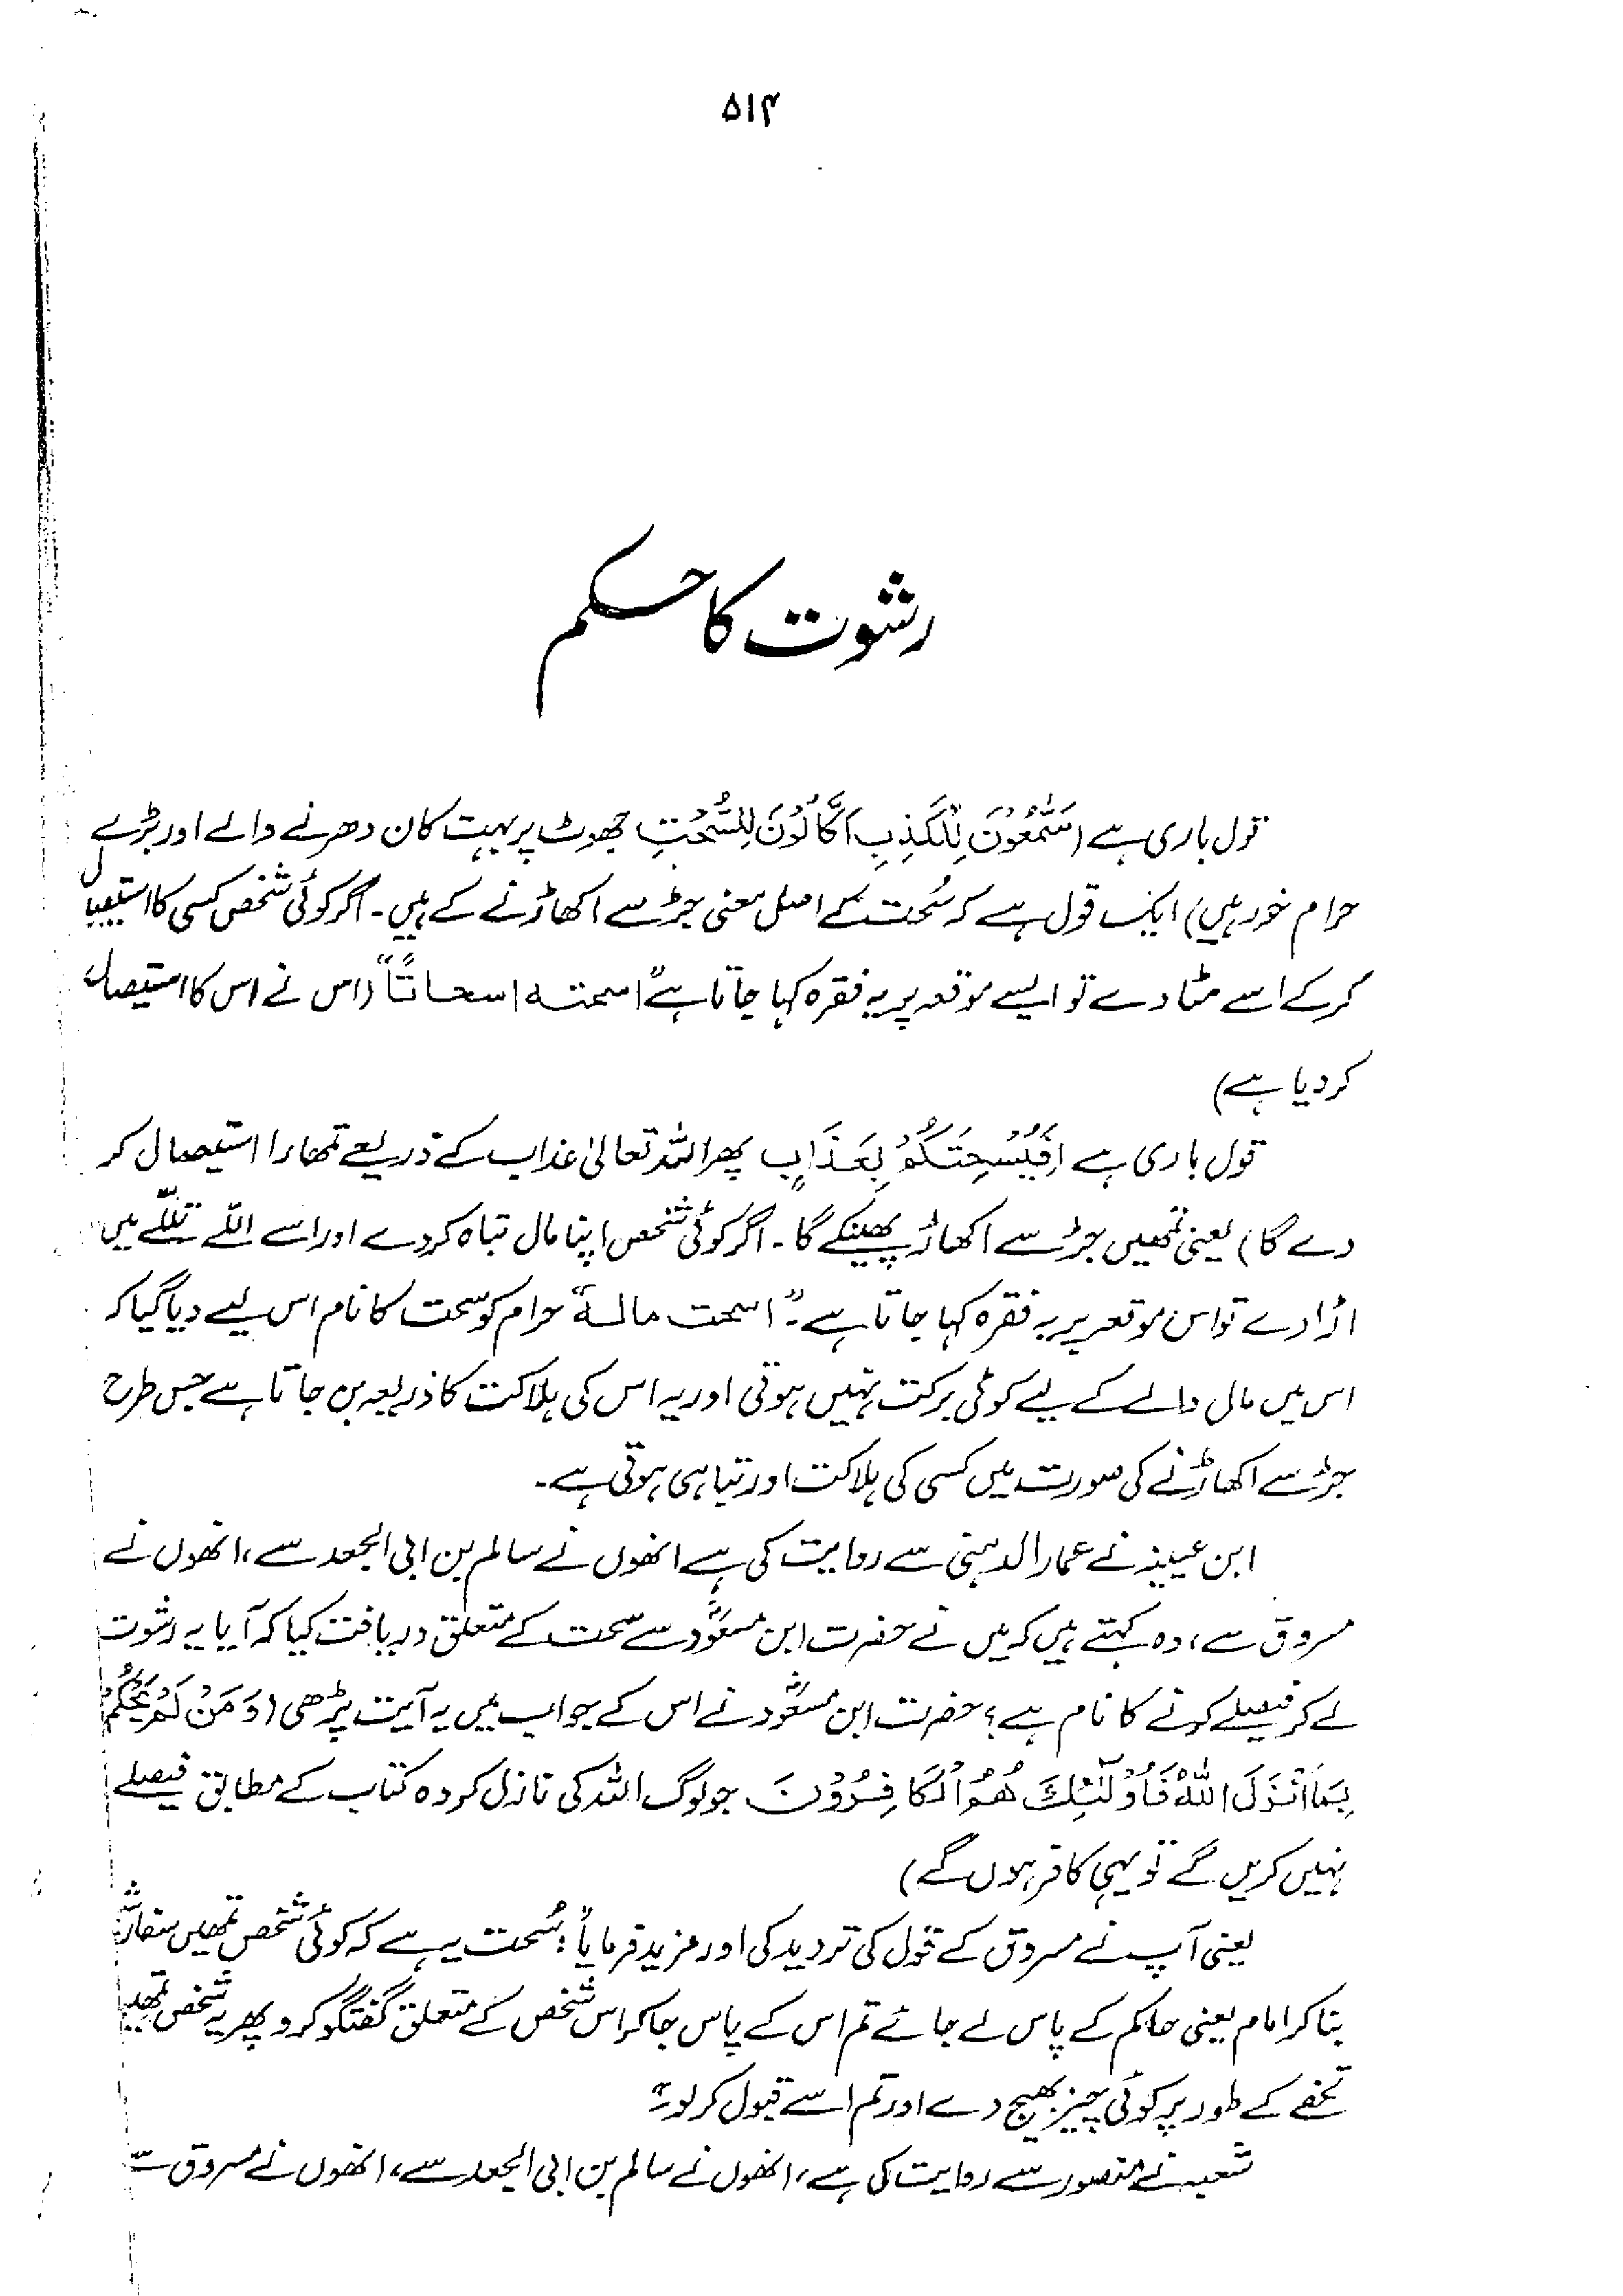 ۵۱۴
رشوت کا حکم
قول باری ہے (سَمّٰعُوْنَ لِلْكَذِبِ اَكَّالُوْنَ لِلسُّحْتِ جھوٹ پر بہت کان دھرنے والے اور بڑے
حرام خور ہیں) ایک قول ہے کہ سُحت کے اصل معنی جڑ سے اکھاڑنے کے ہیں۔ اگر کوئی شخص کسی کا استیصال
کر کے اسے مٹا دے تو ایسے موقعہ پر یہ فقرہ کہا جاتا ہے "اسحتہ اسحاتًا" (اس نے اس کا استیصال
کر دیا ہے)
قول باری ہے (فَيُسْحِتَكُمْ بِعَذَابٍ پھر اللہ تعالیٰ عذاب کے ذریعے تمھارا استیصال کر
دے گا) یعنی تمھیں جڑ سے اکھاڑ پھینکے گا۔ اگر کوئی شخص اپنا مال تباہ کر دے اور اسے اللّے تللّے میں
اڑا دے تو اس موقعہ پر یہ فقرہ کہا جاتا ہے۔ "اسحت مالہ" حرام کو سحت کا نام اس لیے دیا گیا کہ
اس میں مال والے کے لیے کوئی برکت نہیں ہوتی اور یہ اس کی ہلاکت کا ذریعہ بن جاتا ہے جس طرح
جڑ سے اکھاڑنے کی صورت میں کسی کی ہلاکت اور تباہی ہوتی ہے۔
ابن عیینہ نے عمار الدہنی سے روایت کی ہے انھوں نے سالم بن ابی الجعد سے، انھوں نے
مسروق سے، وہ کہتے ہیں کہ میں نے حضرت ابن مسعودؓ سے سحت کے متعلق دریافت کیا کہ آیا یہ رشوت
لے کر فیصلے کرنے کا نام ہے؟ حضرت ابن مسعودؓ نے اس کے جواب میں یہ آیت پڑھی (وَمَنْ لَمْ يَحْكُمْ
بِمَا اَنْزَلَ اللّٰهُ فَاُوْلٰٓئِكَ هُمُ الْكَافِرُوْنَ جو لوگ اللہ کی نازل کردہ کتاب کے مطابق فیصلے
نہیں کریں گے تو یہی کافر ہوں گے)
یعنی آپ نے مسروق کے قول کی تردید کی اور مزید فرمایا: "سُحت یہ ہے کہ کوئی شخص تمھیں سفارشی
بنا کر امام یعنی حاکم کے پاس لے جائے تم اس کے پاس جا کر اس شخص کے متعلق گفتگو کرو پھر یہ شخص تمھیں
تحفے کے طور پر کوئی چیز بھیج دے اور تم اسے قبول کر لو"۔
شعبہ نے منصور سے روایت کی ہے، انھوں نے سالم بن ابی الجعد سے، انھوں نے مسروق سے